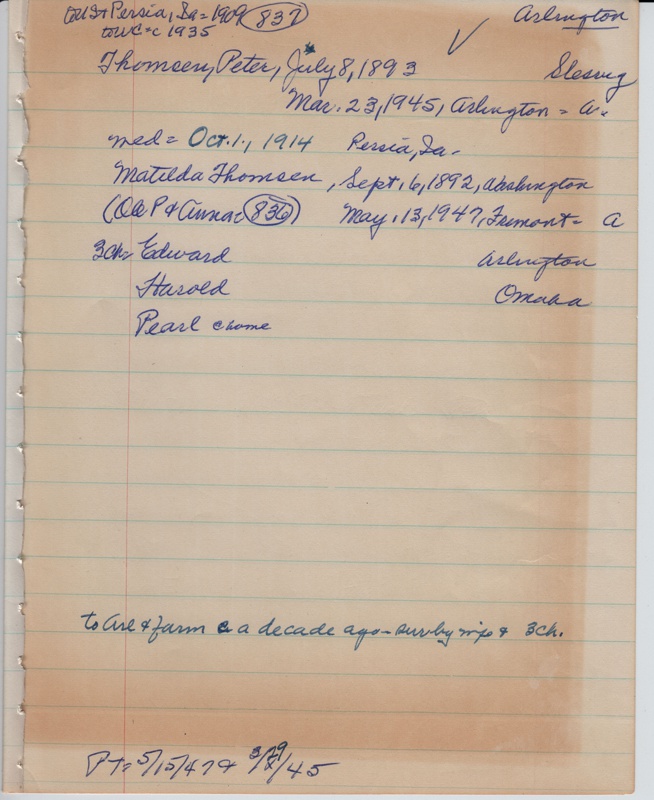 to US + Persia, Ia = 1909 837 Arlington
to WC = c 1935
Thomsen, Peter, July 8, 1893 Slesvig
Mar. 23, 1945, Arlington = A.
med = Oct. 1, 1914 Persia, Ia -
Matilda Thomsen, Sept. 6, 1892, Washington
(Da P & Anna = 836) May. 13, 1947, Fremont = A
3ch = Edward Arlington
Harold Omaha
Pearl c home
to Arl & farm c a decade ago - surv by wife & 3 ch.
PT = 5/15/47 & 3/29/45